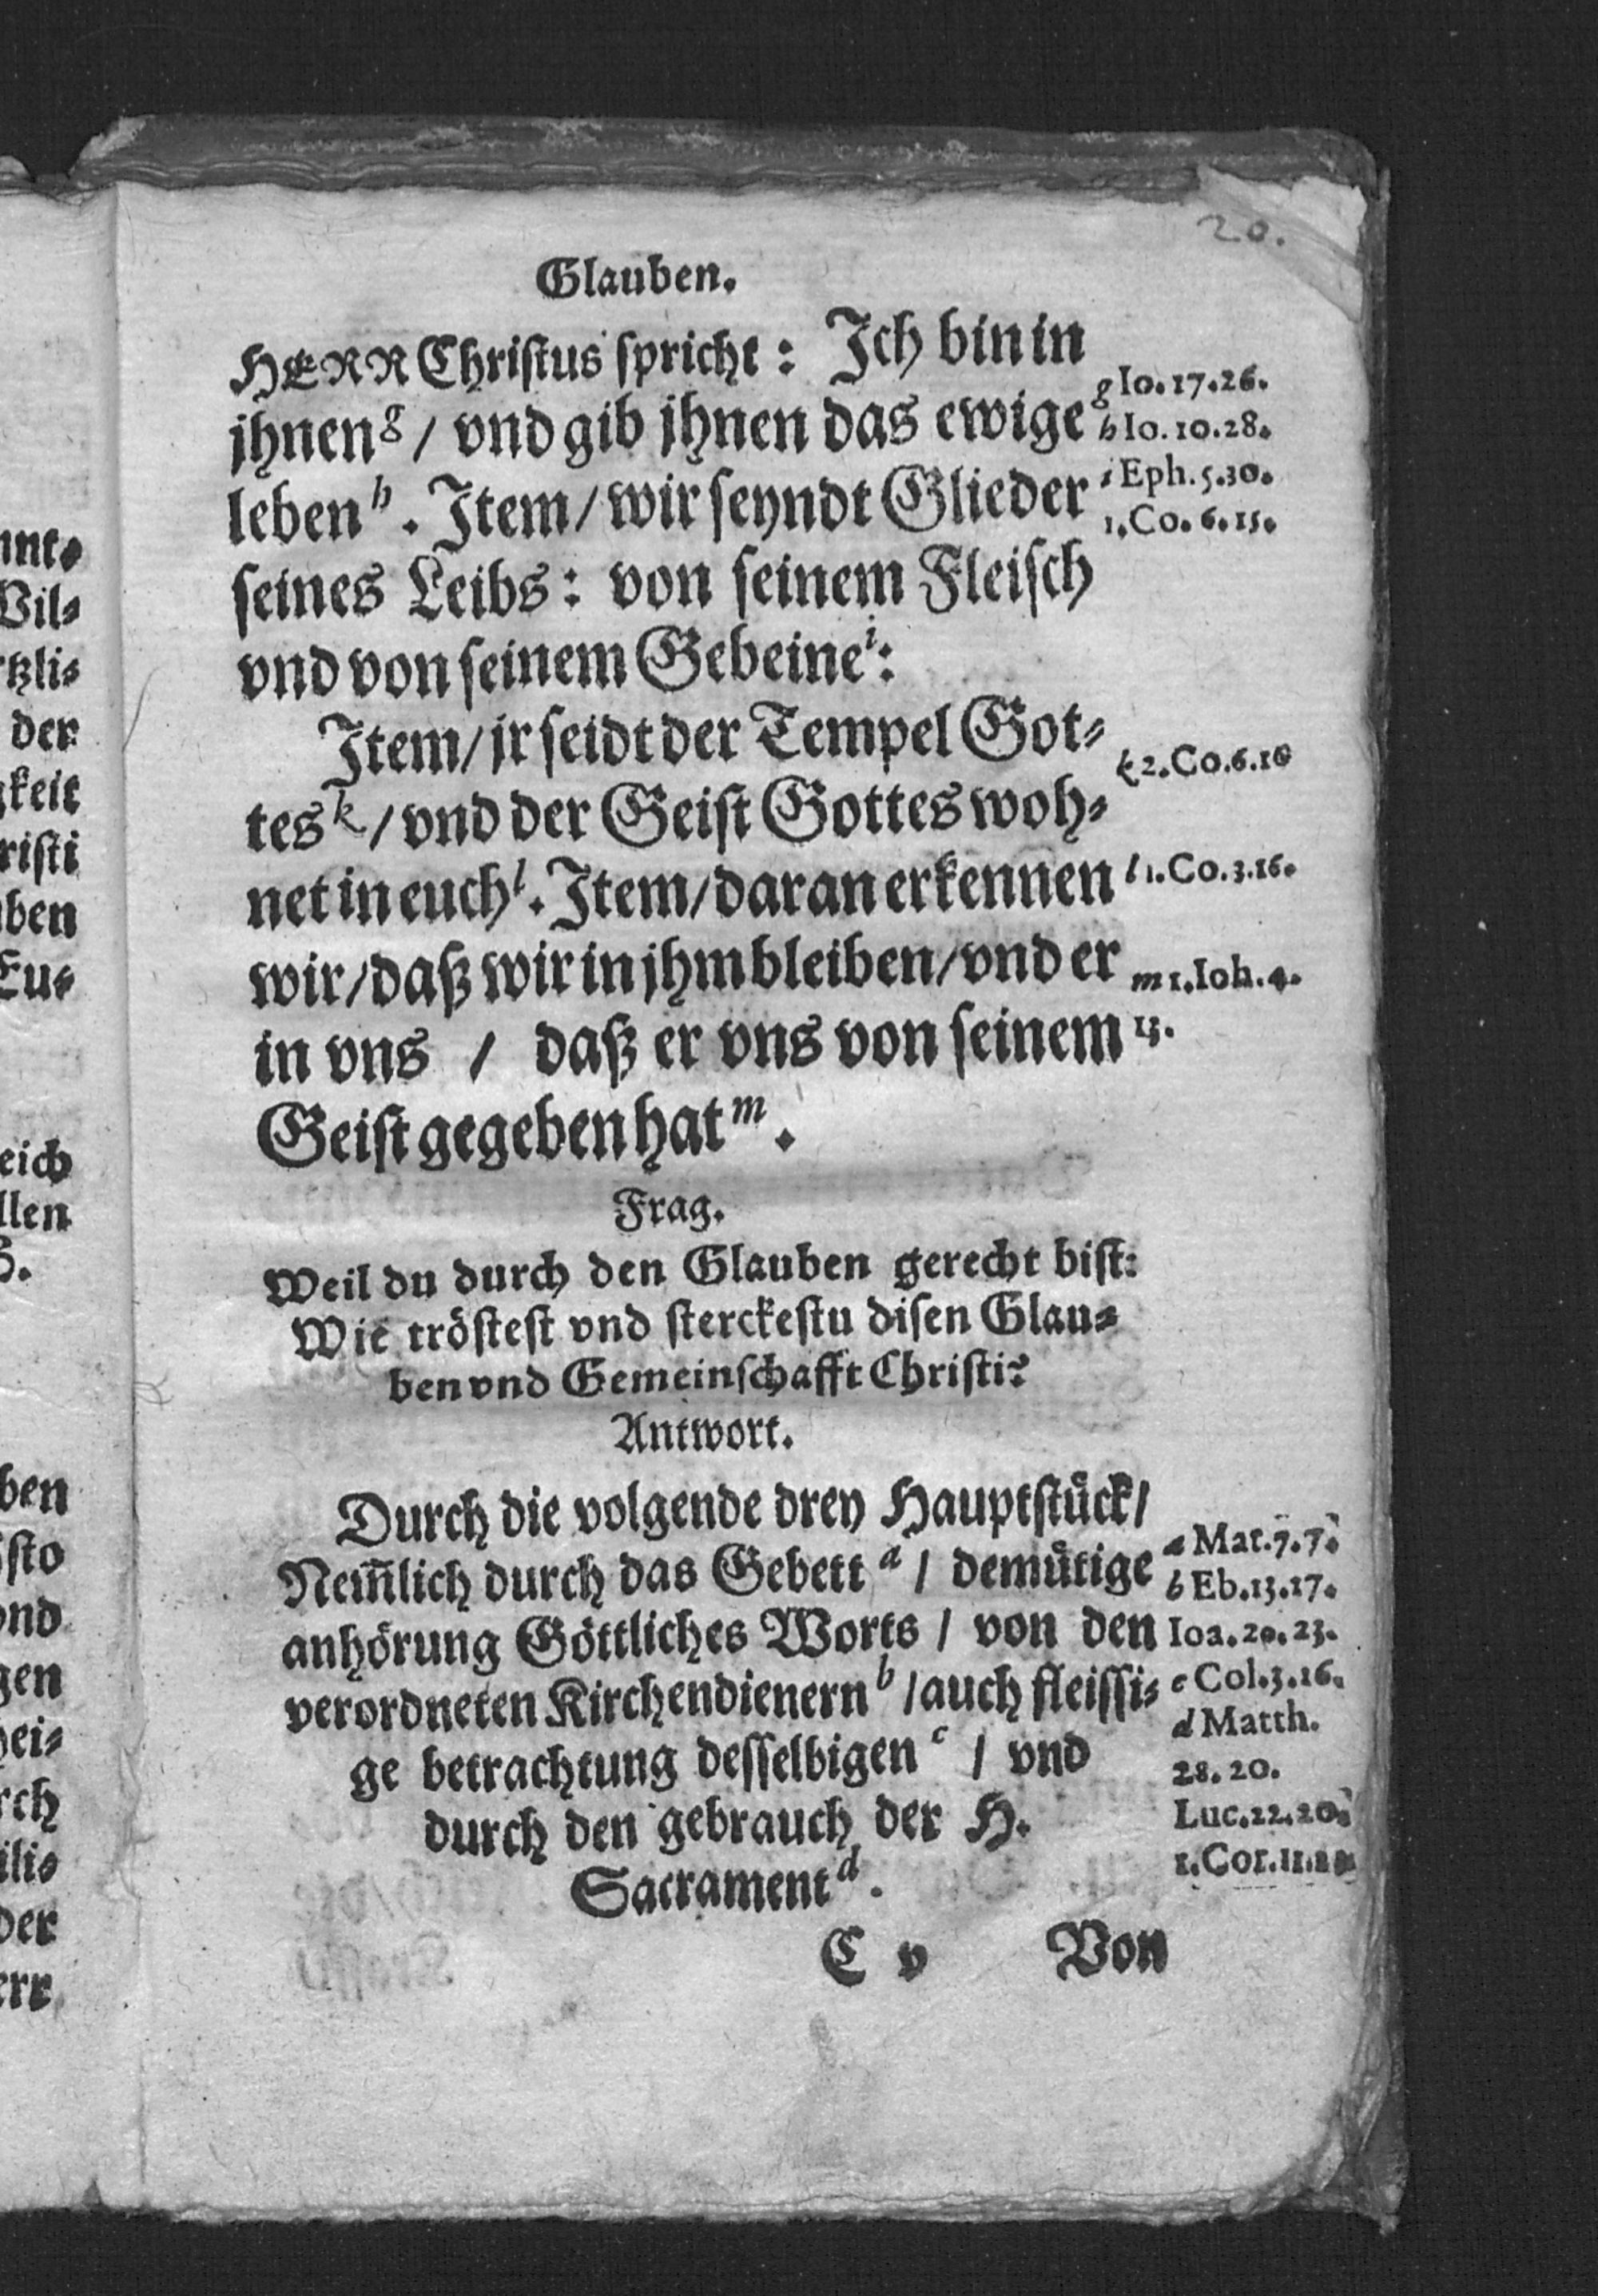 20.
Glauben.
HERR Christus spricht: Ich bin in
jhnen g / vnd gib jhnen das ewige
leben h. Item / wir seyndt Glieder
seines Leibs: von seinem Fleisch
vnd von seinem Gebeine i:
Item / jr seidt der Tempel Got⸗
tes k / vnd der Geist Gottes woh⸗
net in euch l. Item / daran erkennen
wir / daß wir in jhm bleiben / vnd er
in vns / daß er vns von seinem
Geist gegeben hat m.
g Io. 17. 26.
h Io. 10. 28.
i Eph. 5. 30.
1. Co. 6. 15.
k 2. Co. 6. 16
l 1. Co. 3. 16.
m 1. Ioh. 4.
13.
Frag.
Weil du durch den Glauben gerecht bist:
Wie tröstest vnd sterckestu disen Glau⸗
ben vnd Gemeinschafft Christi?
Antwort.
Durch die volgende drey Hauptstück /
Nem̄lich durch das Gebett a / demütige
anhörung Göttliches Worts / von den
verordneten Kirchendienern b / auch fleissi⸗
ge betrachtung desselbigen c / vnd
durch den gebrauch der H.
Sacrament d.
a Mat. 7. 7.
b Eb. 13. 17.
Ioa. 20. 23.
c Col. 3. 16.
d Matth.
28. 20.
Luc. 22. 20.
1. Cor. 11.
C v Von